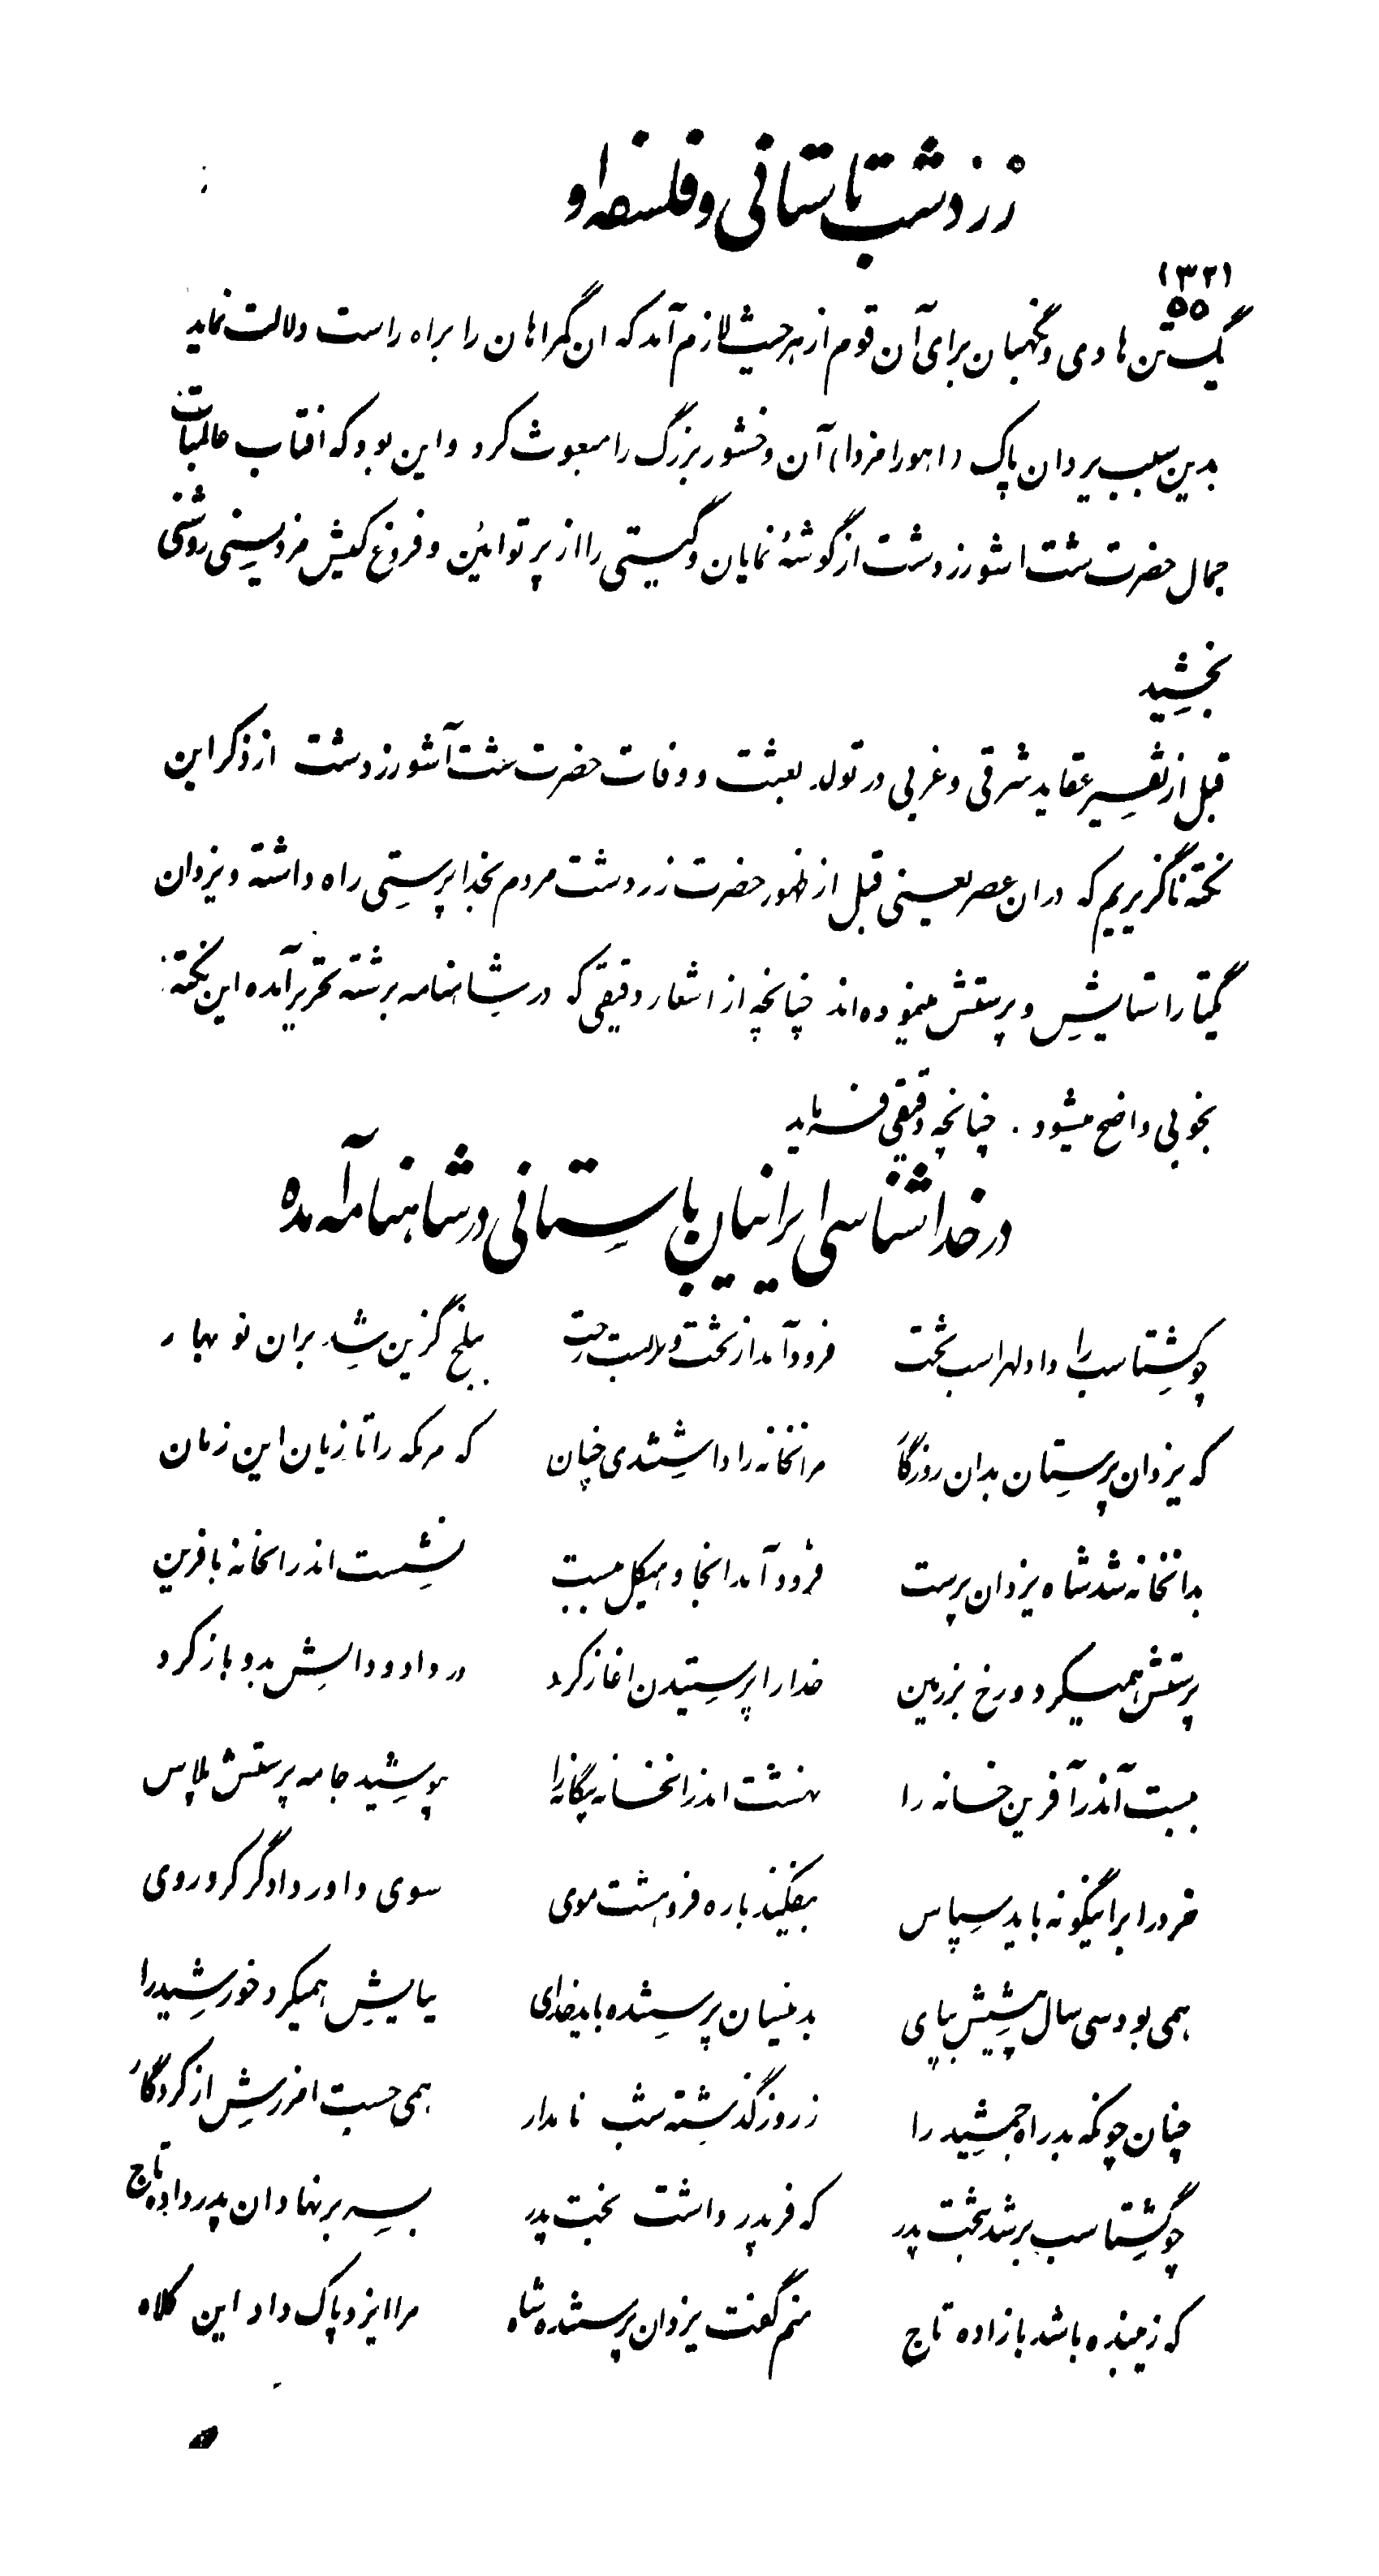 زردشت باستانی و فلسفه او
(۳۲)
۵۵
یک تن هادی و نگهبان برای آن قوم از هر حیث لازم آمد که ان گمراهان را براه راست دلالت نماید
بدین سبب یزدان پاک (اهورا مزدا) آن وخشور بزرگ را مبعوث کرد واین بود که افتاب عالمتاب
جمال حضرت شت اشو زردشت از گوشهٔ نمایان و گیتی را از پرتو ائین و فروغ کیش مزدیسنی روشنی
بخشید
قبل از تفسیر عقاید شرقی و غربی در تولد بعثت و وفات حضرت شت آشو زردشت از ذکر این
نکته ناگزیریم که دران عصر یعنی قبل از ظهور حضرت زردشت مردم بخدا پرستی راه داشته و یزدان
یکتا را ستایش و پرستش مینموده اند چنانچه از اشعار دقیقی که در شاهنامه برشته تحریر آمده این نکته
بخوبی واضح میشود . چنانچه دقیقی فرماید
در خدا شناسی ایرانیان باستانی در شاهنامه آمده
چو گشتاسب را داد لهراسب تخت فرود آمد از تخت و بربست رخت ببلخ گزین شد بران نو بهار
که یزدان پرستان بدان روزگار مرانخانه را داشتندی چنان که مر مکه را تازیان این زمان
بدانخانه شد شاه یزدان پرست فرود آمد انجا و هیکل ببست نشست اندر انخانه بافرین
پرستش همیکرد و رخ بزمین خدا را پرستیدن اغاز کرد در داد و دانش بدو باز کرد
ببست آنذر آفرین خانه را نهشت اندر انخانه بیگانه را بپوشید جامه پرستش پلاس
خرد را برانیگونه باید سپاس بیفکند یاره فروهشت موی سوی داور دادگر کرد روی
همی بود سی سال پیشش بپای بدینسان پرستنده باید خدای نیایش همیکرد خورشید را
چنان چونکه بد راه جمشید را ز روز گذشته شب نامدار همی جست امرزش از کردگار
چو گشتاسب بر شد بتخت پدر که فر پدر داشت تخت پدر بسر بر نهاد ان پدر داده تاج
که زیبنده باشد بازاده تاج منم گفت یزدان پرستنده شاه مرا ایزد پاک داد این کلاه